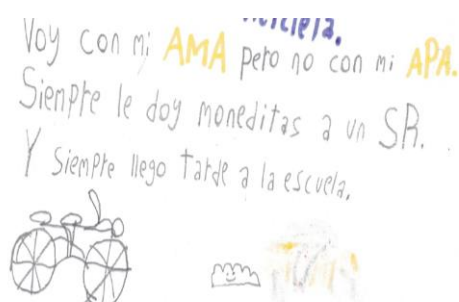 Voy con mi AMA pero no con mi APA.
Siempre le doy moneditas a un SR.
Y siempre llego tarde a la escuela.